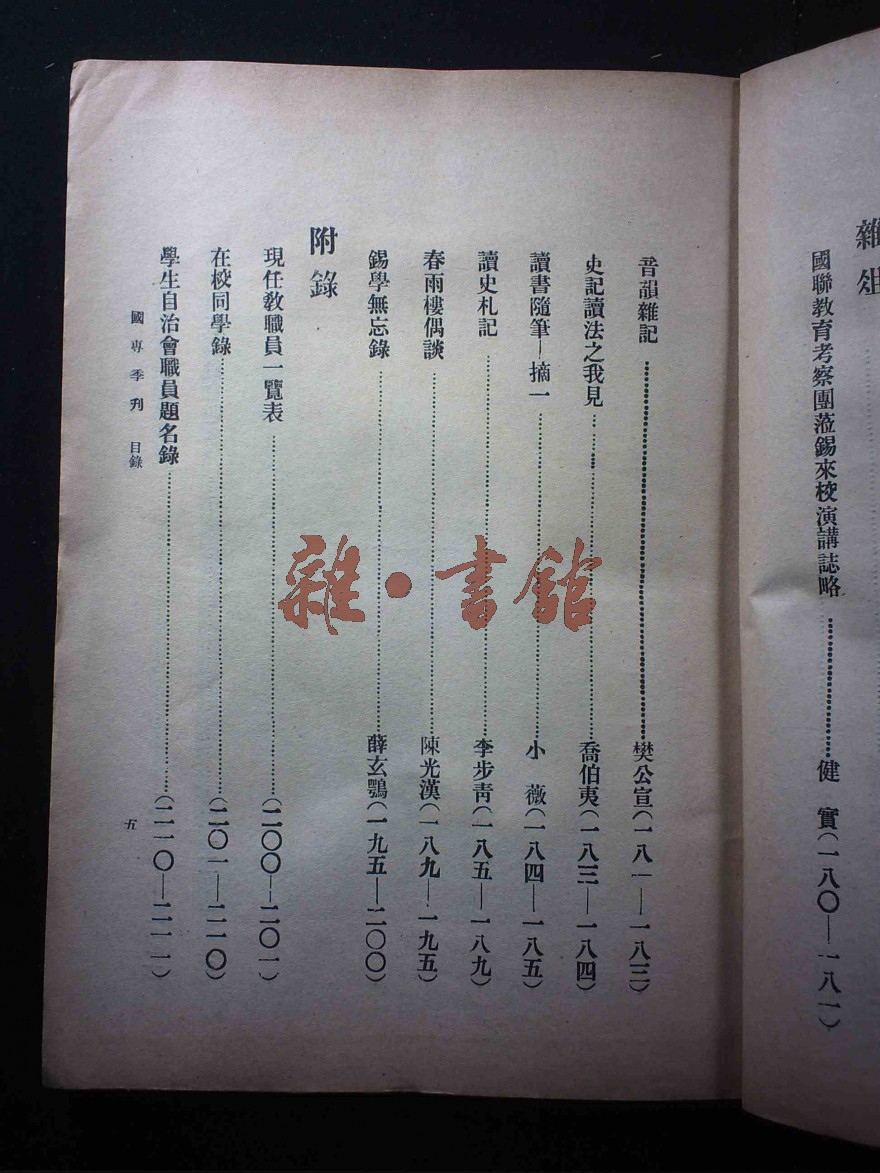 雜俎
國聯教育考察團蒞錫來校演講誌略……健　實(一八〇—一八一)
音韻雜記……樊公宣(一八一—一八三)
史記讀法之我見……喬伯夷(一八三—一八四)
讀書隨筆—摘一……小　薇(一八四—一八五)
讀史札記……李步靑(一八五—一八九)
春雨樓偶談……陳光漢(一八九—一九五)
錫學無忘錄……薛玄鶚(一九五—二〇〇)
附錄
現任敎職員一覽表……(二〇〇—二〇一)
在校同學錄……(二〇一—二一〇)
學生自治會職員題名錄……(二一〇—二一一)
國專季刋　目錄
五
雜·書館